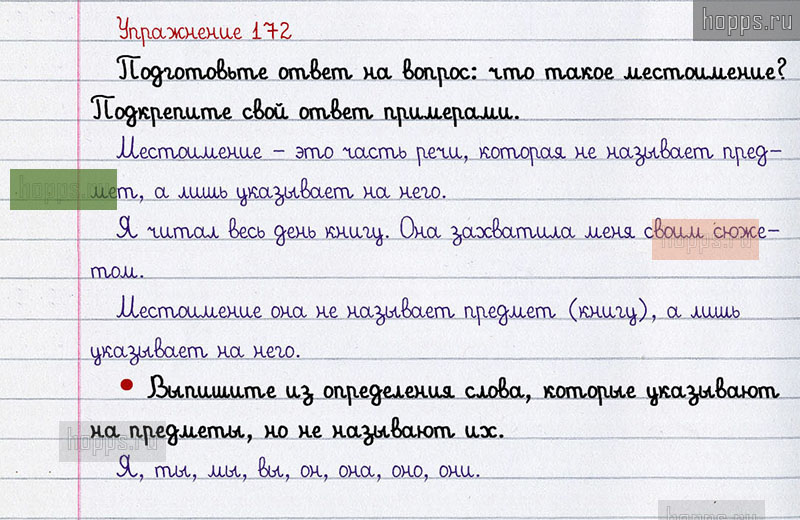 hopps.ru
Упражнение 172
Подготовьте ответ на вопрос: что такое местоимение?
Подкрепите свой ответ примерами.
Местоимение – это часть речи, которая не называет пред-
мет, а лишь указывает на него.
hopps.ru
Я читал весь день книгу. Она захватила меня своим сюже-
hopps.ru
том.
Местоимение она не называет предмет (книгу), а лишь
указывает на него.
• Выпишите из определения слова, которые указывают
на предметы, но не называют их.
hopps.ru
Я, ты, мы, вы, он, она, оно, они.
hopps.ru